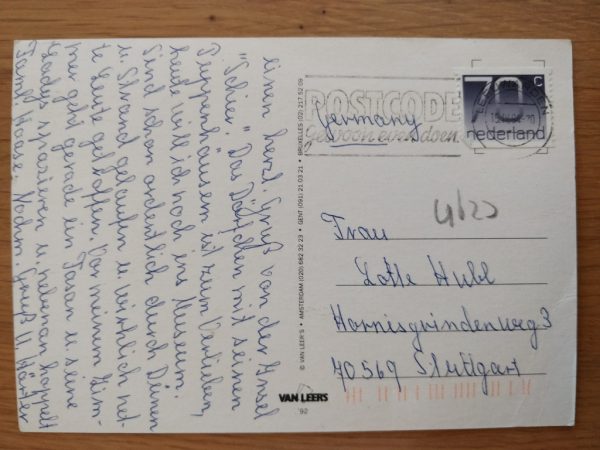 einen herzl. Gruß von der Insel
"Schier". Das Dörfchen mit seinen
Puppenhäusern ist zum Verlieben,
heute will ich noch ins Museum.
Sind schon ordentlich durch Dünen
u. Strand gelaufen u. wirklich net-
te Leute getroffen. Vor meinem Zim-
mer geht gerade ein Fasan u. seine
Ladys spazieren u. nebenan hoppelt
Fam. Haase. Nochm. Gruß u.
© VAN LEER'S • AMSTERDAM (020) 682 32 23 • GENT (091) 21 03 21 • BRUXELLES (02) 217 52 09
VAN LEERS
'92
POSTCODE
Gewoon even doen.
70 c
nederland
Germany
4/22
Frau
Lotte Hubl
Hornisgrindenweg 3
70569 Stuttgart